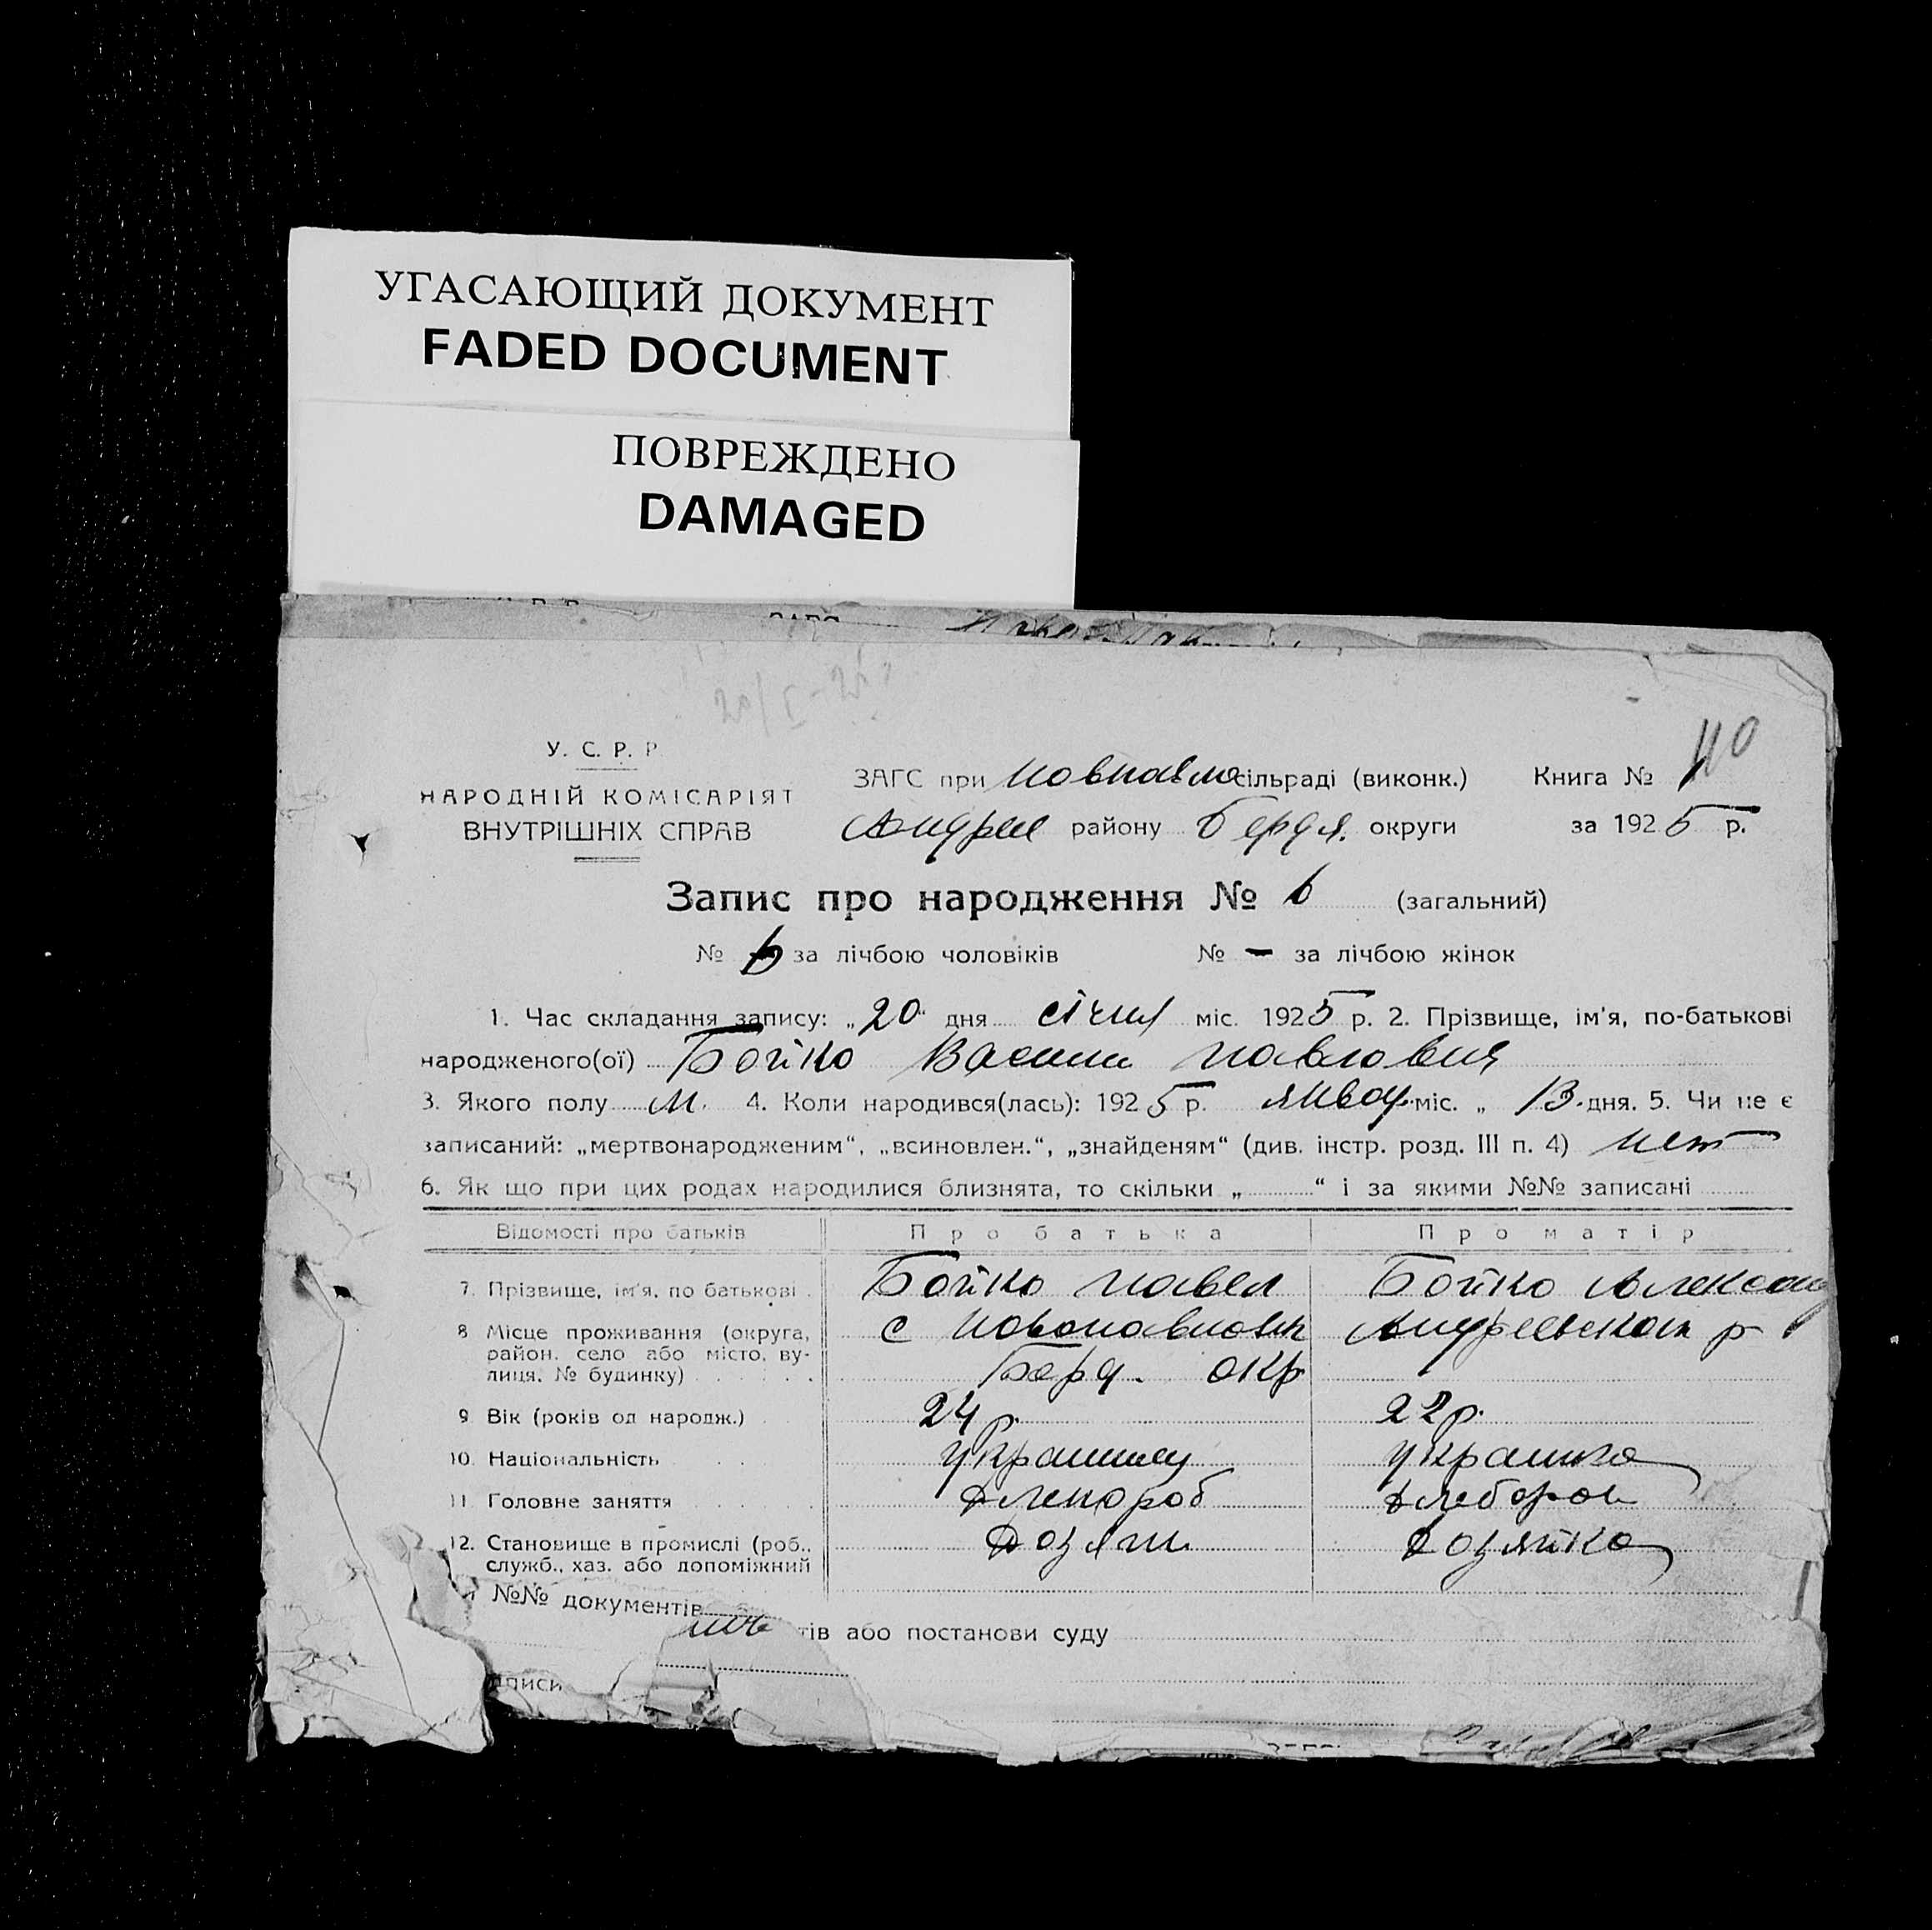 УГАСАЮЩИЙ ДОКУМЕНТ
FADED DOCUMENT
ПОВРЕЖДЕНО
DAMAGED
У. С. Р. Р
НАРОДНІЙ КОМІСАРІЯТ
ВНУТРІШНІХ СПРАВ
ЗАГС при Новпавло сільраді (виконк.) Книга №
Андрее району Бердя. округи за 1925 р.
Запис про народження № 6 (загальний)
№ 6 за лічбою чоловіків № – за лічбою жінок
1. Час складання запису: „20“ дня січня міс. 1925 р. 2. Прізвище, ім'я, по-батькові
народженого(ої) Бойко Васили Павлович
3. Якого полу М. 4. Коли народився(лась): 1925 р. январ. міс. „ 13. дня. 5. Чи не є
записаний: „мертвонародженим“, „всиновлен.“, „знайденям“ (див. інстр. розд. III п. 4) нет
6. Як що при цих родах народилися близнята, то скільки „ “ і за якими №№ записані
Відомості про батьків Про батька Про матір
7. Прізвище, ім'я, по батькові Бойко Павел Бойко Александ
8 Місце проживання (округа, с Новопавловк Андреевском р
район, село або місто, ву-
лиця, № будинку) Берд. окр
9 Вік (років од народж.) 24 р. 22 р.
10. Національність украинец украинка
11. Головне заняття хлебороб
12. Становище в промислі (роб., хозяин хозяйка
служб., хаз. або допоміжний
№№ документів
тів або постанови суду
дписи